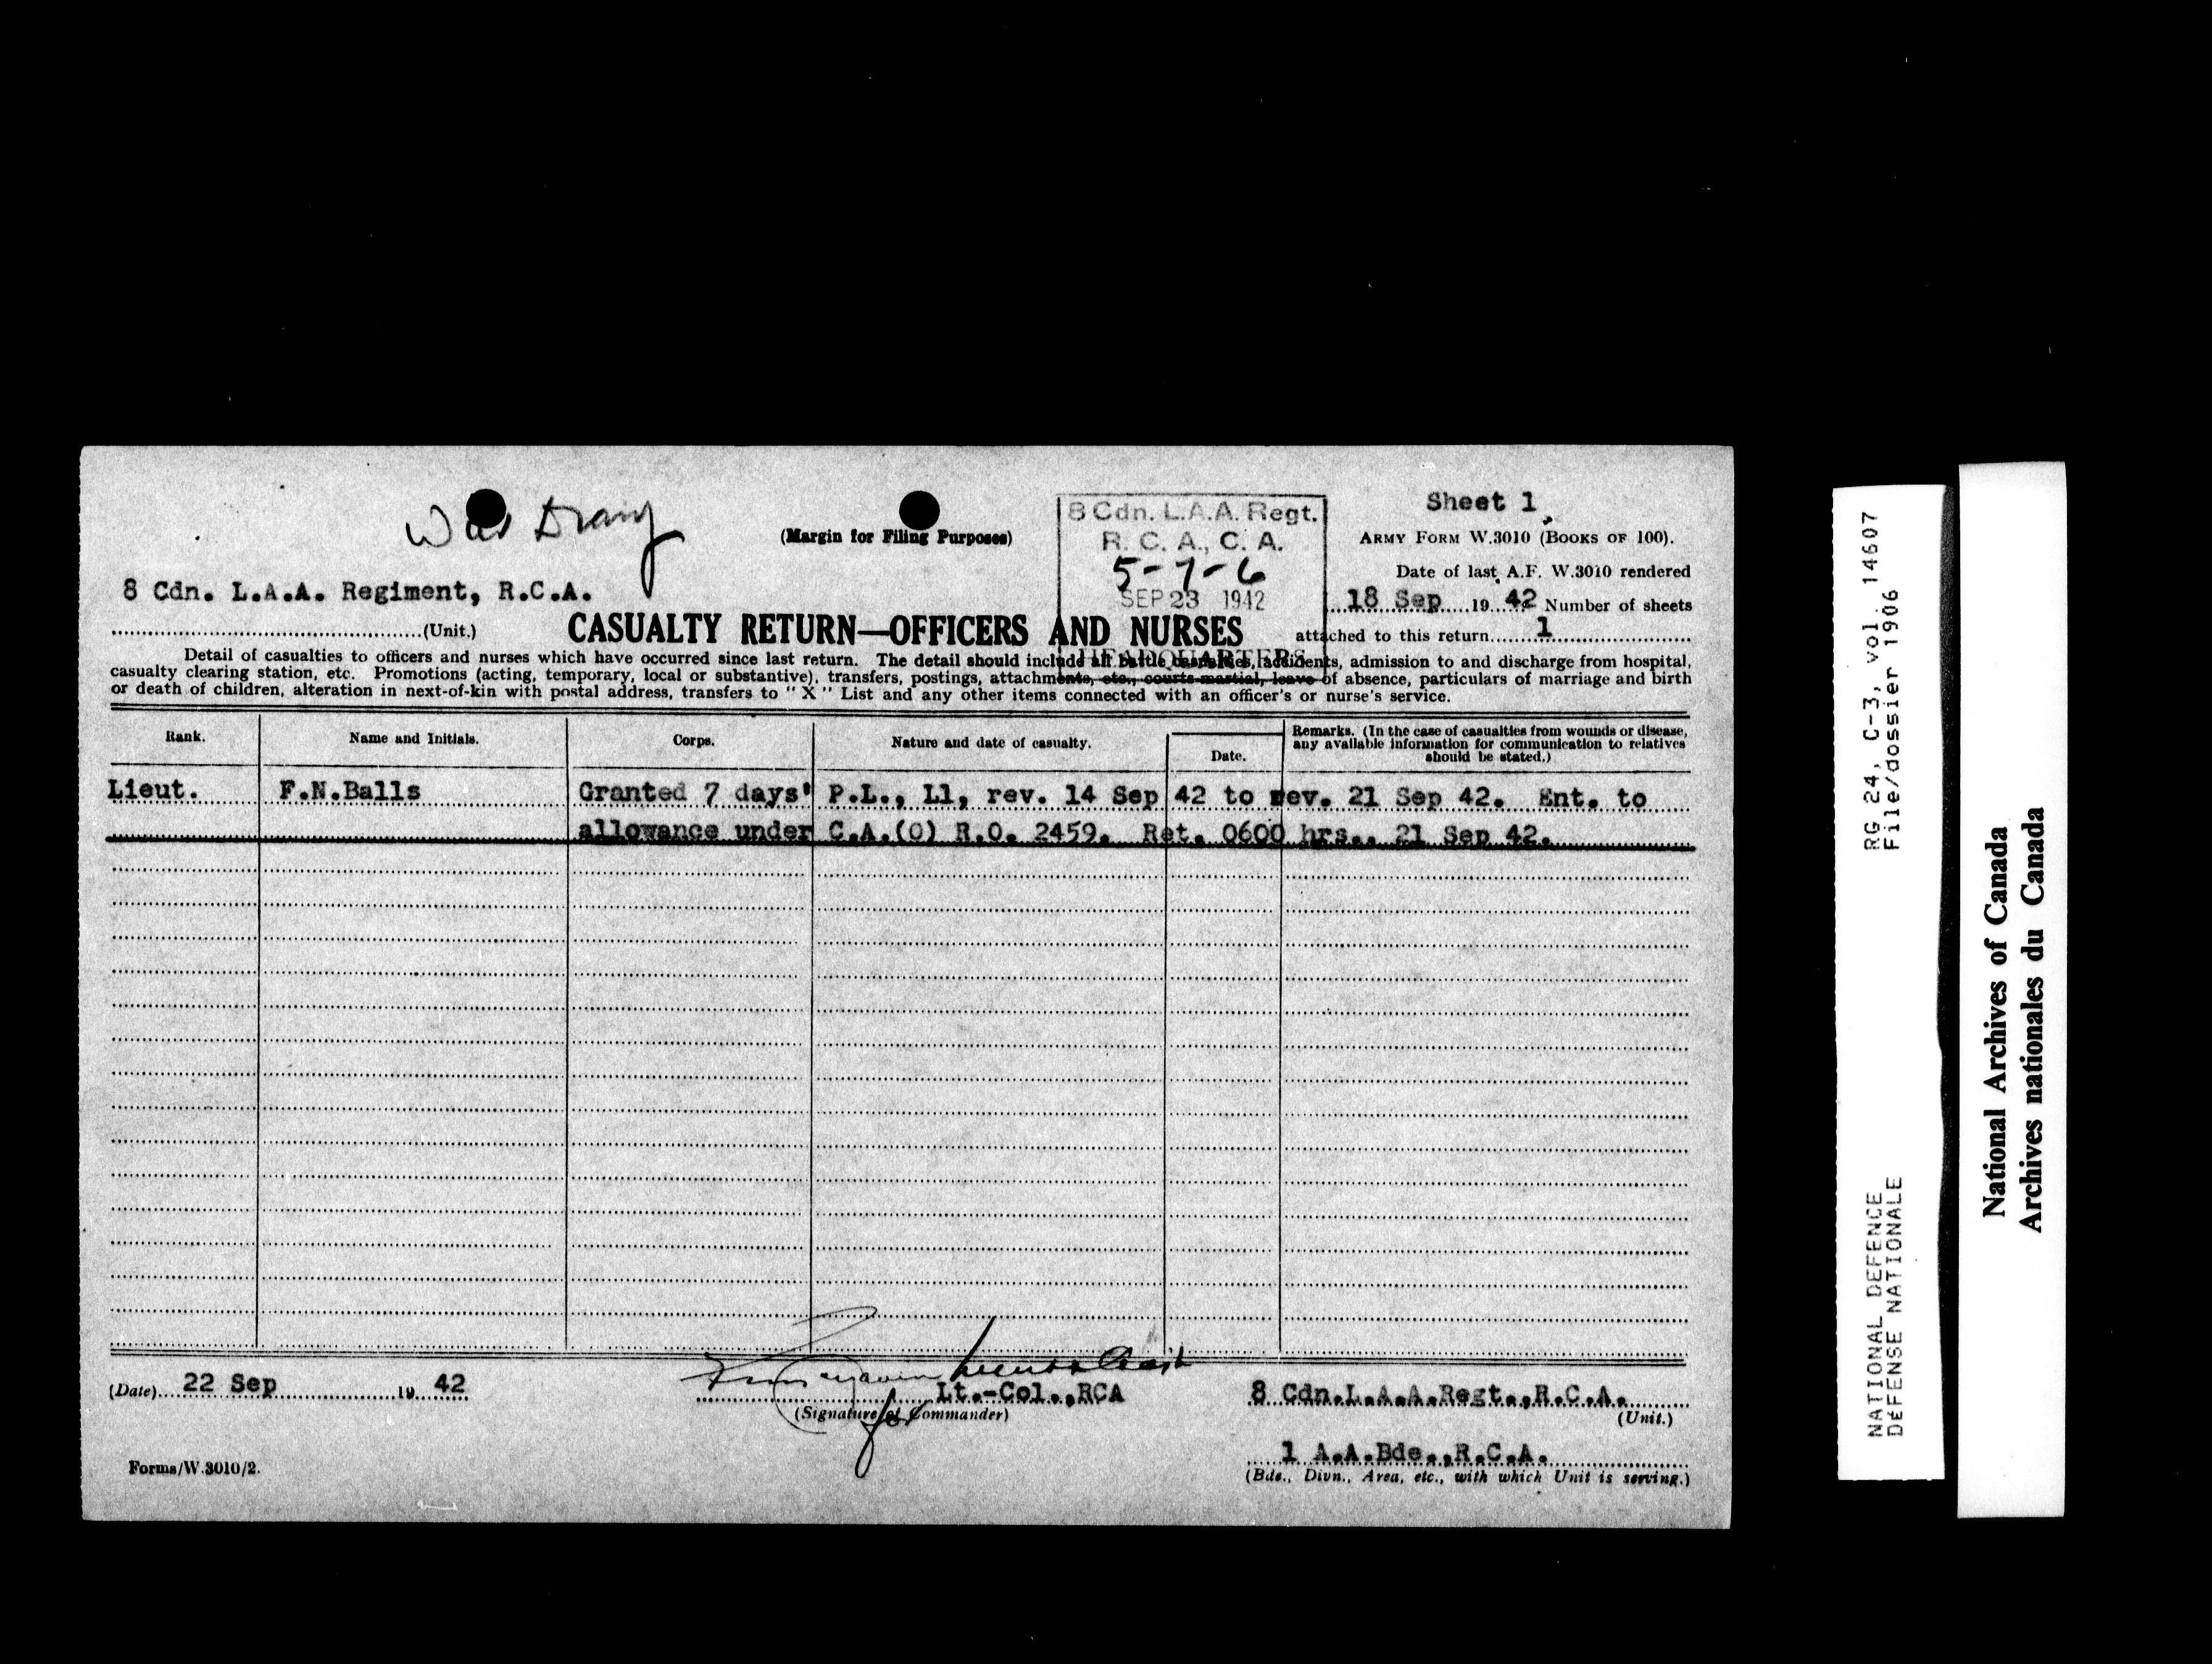 War Diary
(Margin for Filing Purposes)
8 Cdn. L.A.A. Regt.
R. C. A., C. A.
5-1-6
SEP 23 1942
HEADQUARTERS
Sheet 1
ARMY FORM W.3010 (BOOKS OF 100).
Date of last A.F. W.3010 rendered
18 Sep 19 42 Number of sheets
attached to this return 1
8 Cdn. L.A.A. Regiment, R.C.A.
(Unit.)
CASUALTY RETURN—OFFICERS AND NURSES
Detail of casualties to officers and nurses which have occurred since last return. The detail should include all battle casualties, accidents, admission to and discharge from hospital,
casualty clearing station, etc. Promotions (acting, temporary, local or substantive), transfers, postings, attachments, etc., courts-martial, leave of absence, particulars of marriage and birth
or death of children, alteration in next-of-kin with postal address, transfers to "X" List and any other items connected with an officer's or nurse's service.
Rank. Name and Initials. Corps. Nature and date of casualty. Date. Remarks. (In the case of casualties from wounds or disease,
any available information for communication to relatives
should be stated.)
Lieut. F.N.Balls Granted 7 days' P.L., L1, rev. 14 Sep 42 to rev. 21 Sep 42. Ent. to
allowance under C.A.(O) R.O. 2459. Ret. 0600 hrs., 21 Sep 42.
(Date) 22 Sep 19 42
for
Lt.-Col.,RCA
(Signature of Commander)
8 Cdn.L.A.A.Regt.,R.C.A.
(Unit.)
1 A.A.Bde.,R.C.A.
(Bde., Divn., Area, etc., with which Unit is serving.)
Forms/W.3010/2.
RG 24, C-3, vol. 14607
File/dossier 1906
NATIONAL DEFENCE
DÉFENSE NATIONALE
National Archives of Canada
Archives nationales du Canada